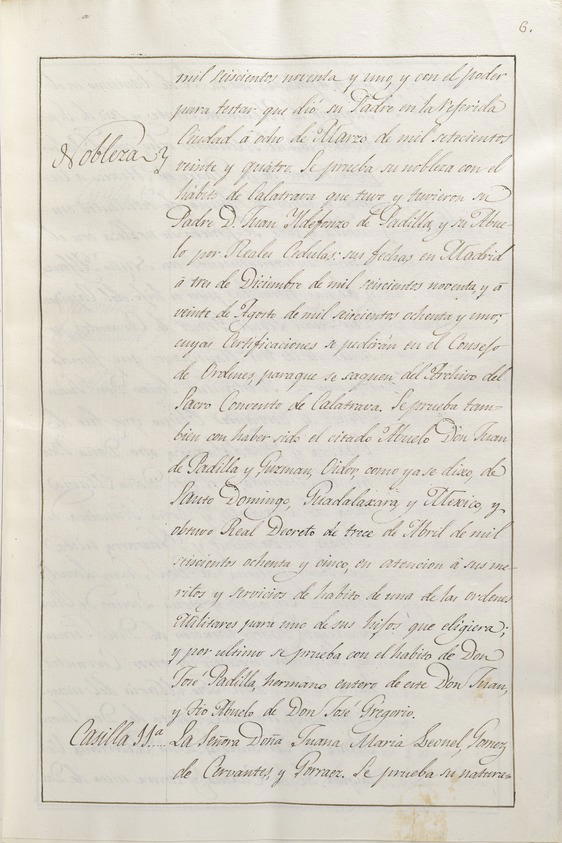 6.
mil seiscientos noventa y uno, y con el poder
para testar que dió su Padre en la referida
Ciudad á ocho de Marzo de mil setecientos
Nobleza
veinte y quatro. Se prueba su nobleza con el
habito de Calatrava que tuvo y tuvieron su
Padre D. Juan Ildefonzo de Padilla, y su Abue-
lo por Reales Cedulas: sus fechas en Madrid
á tres de Diciembre de mil seiscientos noventa, y á
veinte de Agosto de mil seiscientos ochenta y uno;
cuyas Certificaciones se pedirán en el Consejo
de Ordenes, paraque se saquen del Archivo del
Sacro Convento de Calatrava. Se prueba tam-
bien con haber sido el citado Abuelo Don Juan
de Padilla y Guzman, Oidor, como ya se dixo, de
Santo Domingo, Guadalaxara y Mexico, y
obtuvo Real Decreto de trece de Abril de mil
seiscientos ochenta y cinco, en atencion á sus me-
ritos y servicios de habito de una de las ordenes
Militares para uno de sus hijos que eligiera;
y por ultimo se prueba con el habito de Don
José Padilla, hermano entero de este Don Juan,
y tio Abuelo de Don José Gregorio.
Casilla 11ª
La Señora Doña Juana Maria Leonel, Gomez
de Cervantes, y Porraez. Se prueba su nature=